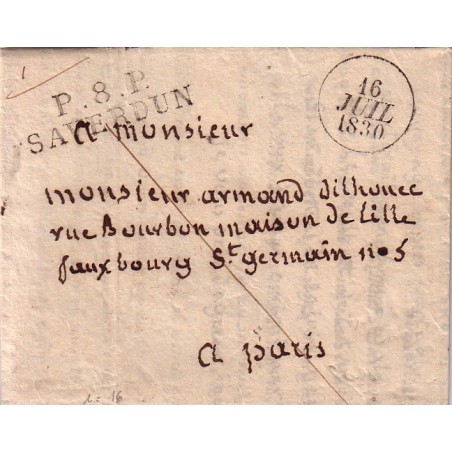 P.8.P.
SAVERDUN
16
JUIL
1830
a monsieur
monsieur armand dilhouee
rue Bourbon maison de lille
fauxbourg St. germain no 5
a paris
16